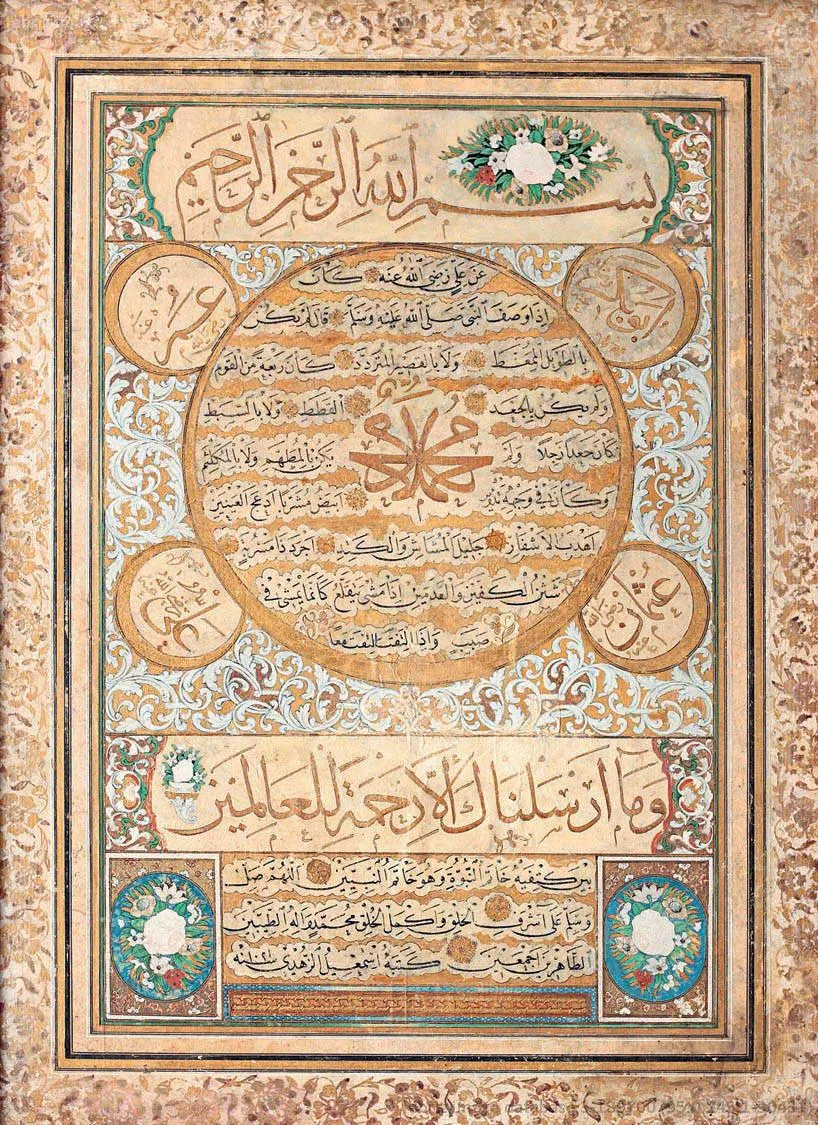 بِسْمِ اللهِ الرَّحْمٰنِ الرَّحِيمِ
عَنْ عَلِيٍّ رَضِيَ اللهُ عَنْهُ كَانَ
إِذَا وَصَفَ النَّبِيَّ صَلَّى اللهُ عَلَيْهِ وَسَلَّمَ قَالَ لَمْ يَكُنْ
بِالطَّوِيلِ الْمُمَغَّطِ وَلَا بِالْقَصِيرِ الْمُتَرَدِّدِ كَانَ رَبْعَةً مِنَ الْقَوْمِ
وَلَمْ يَكُنْ بِالْجَعْدِ الْقَطَطِ وَلَا بِالسَّبِطِ
كَانَ جَعْدًا رَجِلًا وَلَمْ يَكُنْ بِالْمُطَهَّمِ وَلَا بِالْمُكَلْثَمِ
وَكَانَ فِي وَجْهِهِ تَدْوِيرٌ أَبْيَضُ مُشْرَبٌ أَدْعَجُ الْعَيْنَيْنِ
أَهْدَبُ الْأَشْفَارِ جَلِيلُ الْمُشَاشِ وَالْكَتَدِ أَجْرَدُ ذَا مَسْرُبَةٍ
شَثْنُ الْكَفَّيْنِ وَالْقَدَمَيْنِ إِذَا مَشَى يَتَقَلَّعُ كَأَنَّمَا يَمْشِي فِي
صَبَبٍ وَإِذَا الْتَفَتَ الْتَفَتَ مَعًا
محمد
عمر رضي الله عنه
عثمان رضي الله عنه
علي رضي الله عنه
وَمَا أَرْسَلْنَاكَ إِلَّا رَحْمَةً لِلْعَالَمِينَ
بَيْنَ كَتِفَيْهِ خَاتَمُ النُّبُوَّةِ وَهُوَ خَاتَمُ النَّبِيِّينَ اللَّهُمَّ صَلِّ
وَسَلِّمْ عَلَى أَشْرَفِ الْخَلْقِ وَأَكْمَلِ الْخُلُقِ مُحَمَّدٍ وَآلِهِ الطَّيِّبِينَ
الطَّاهِرِينَ أَجْمَعِينَ كَتَبَهُ إِسْمٰعِيلُ الزُّهْدِي